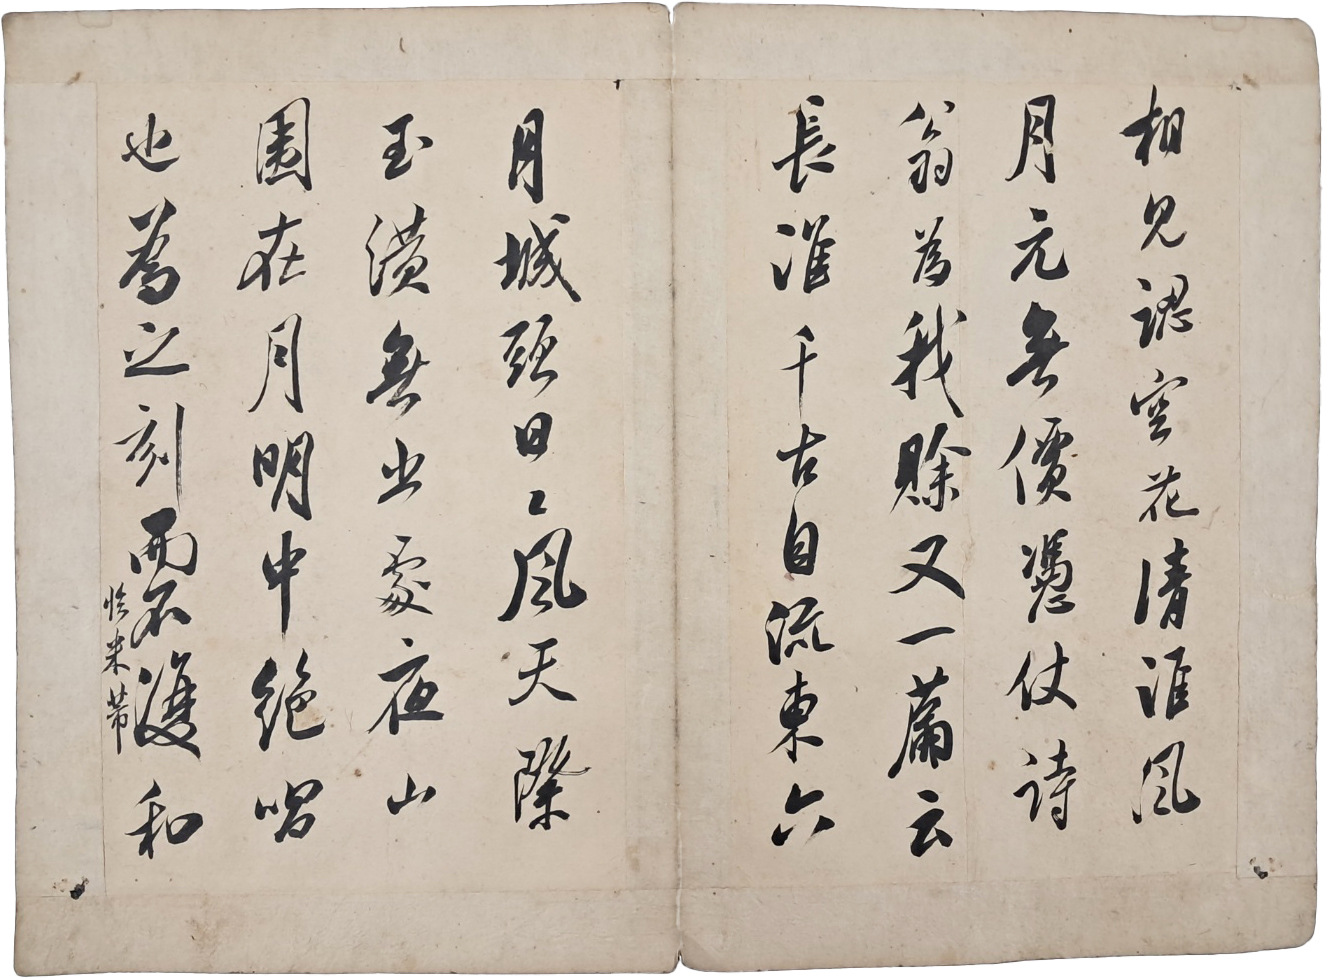 相見認空花清淮風
月元無價憑仗詩
翁為我賒又一篇云
長淮千古自流東六
月城頭日日風天際
玉潢無出處夜山
圍在月明中絕唱
也為之刻而不復和
臨米帶